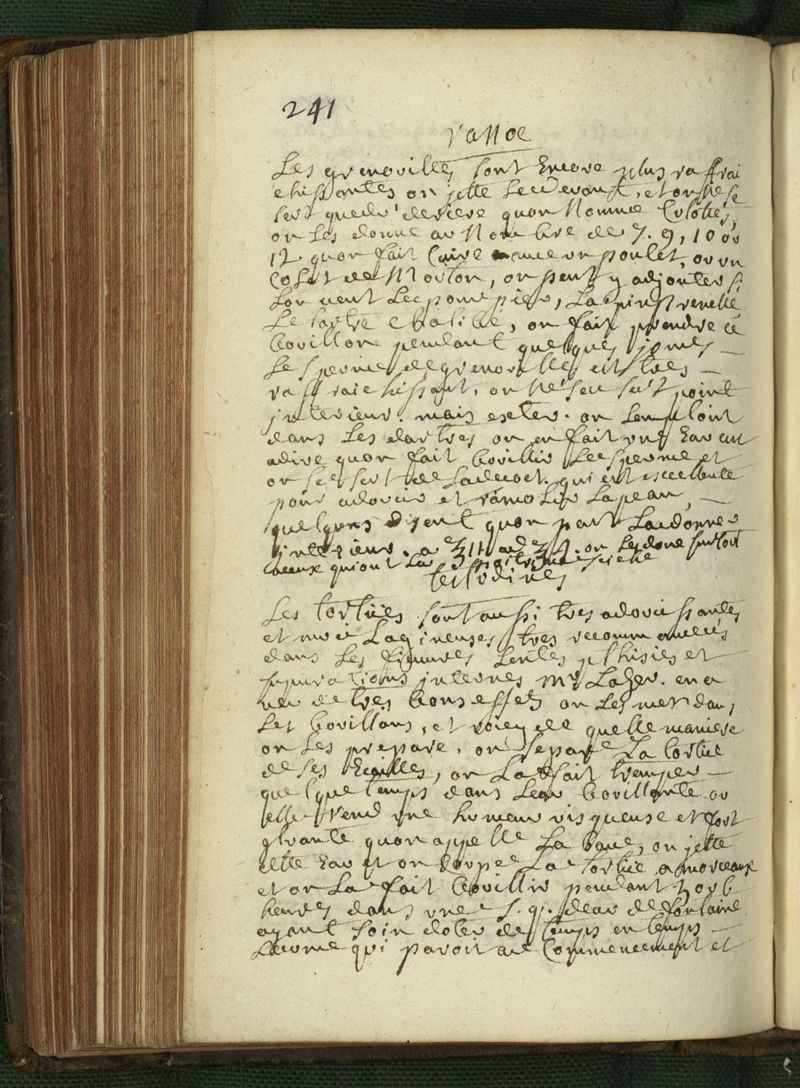 241
ranae
Les grenouilles sont Encore plus raffrai
chissantes on jette Le devant, et on ne se
sert que du deriere quon Nomme Culotte,
on Les donne au Nombre de 7. 9, 10 ou
12 quon fait Cuire avec un poulet, ou un
Colet de Mouton, on peut y adjouter si
Lon veut Le pourpier, La pimprenelle
Le tartre chalibé, on fait prendre ce
bouillon pendant quelques jours
Le sperme de grenouilles est tres
raffraichissant, on ne sen sert point
interieur. mais exter. on Lemploit
dans Les dartres on en fait une Eau cest
adire quon fait bouillir Le sperme et
on se sert de La decoct. qui est excellente
pour adoucir et ramolir La peau,
quelques disent quon peut La donner
interieur. a ℥ii a ℥4. on Le done surtout
a ceux qui ont La poitrine seiche
testudines
Les tortues sont aussi tres adoucissantes
et mucilagineuses, tres recommandées
dans Les fievres Lentes, phtisies et
supurations internes Mr Lazer. en a
veu de tres bons effets on Les met dans
Les bouillons, et voicy de quelle maniere
on Les prepare, on separe La tortue
de ses Ecailles, on La fait tremper
quelque temps dans Leau bouillante ou
elle rend une humeur visqueuse et fort
gluante quon appelle La baue, on jette
cette Eau et on coupe La tortue a morceaux
et on La fait bouillir pendant 5 ou 6
heures dans une s. q. deau de fontaine
ayant soin doter de temps en temps
Lecume qui paroit au Commencement et